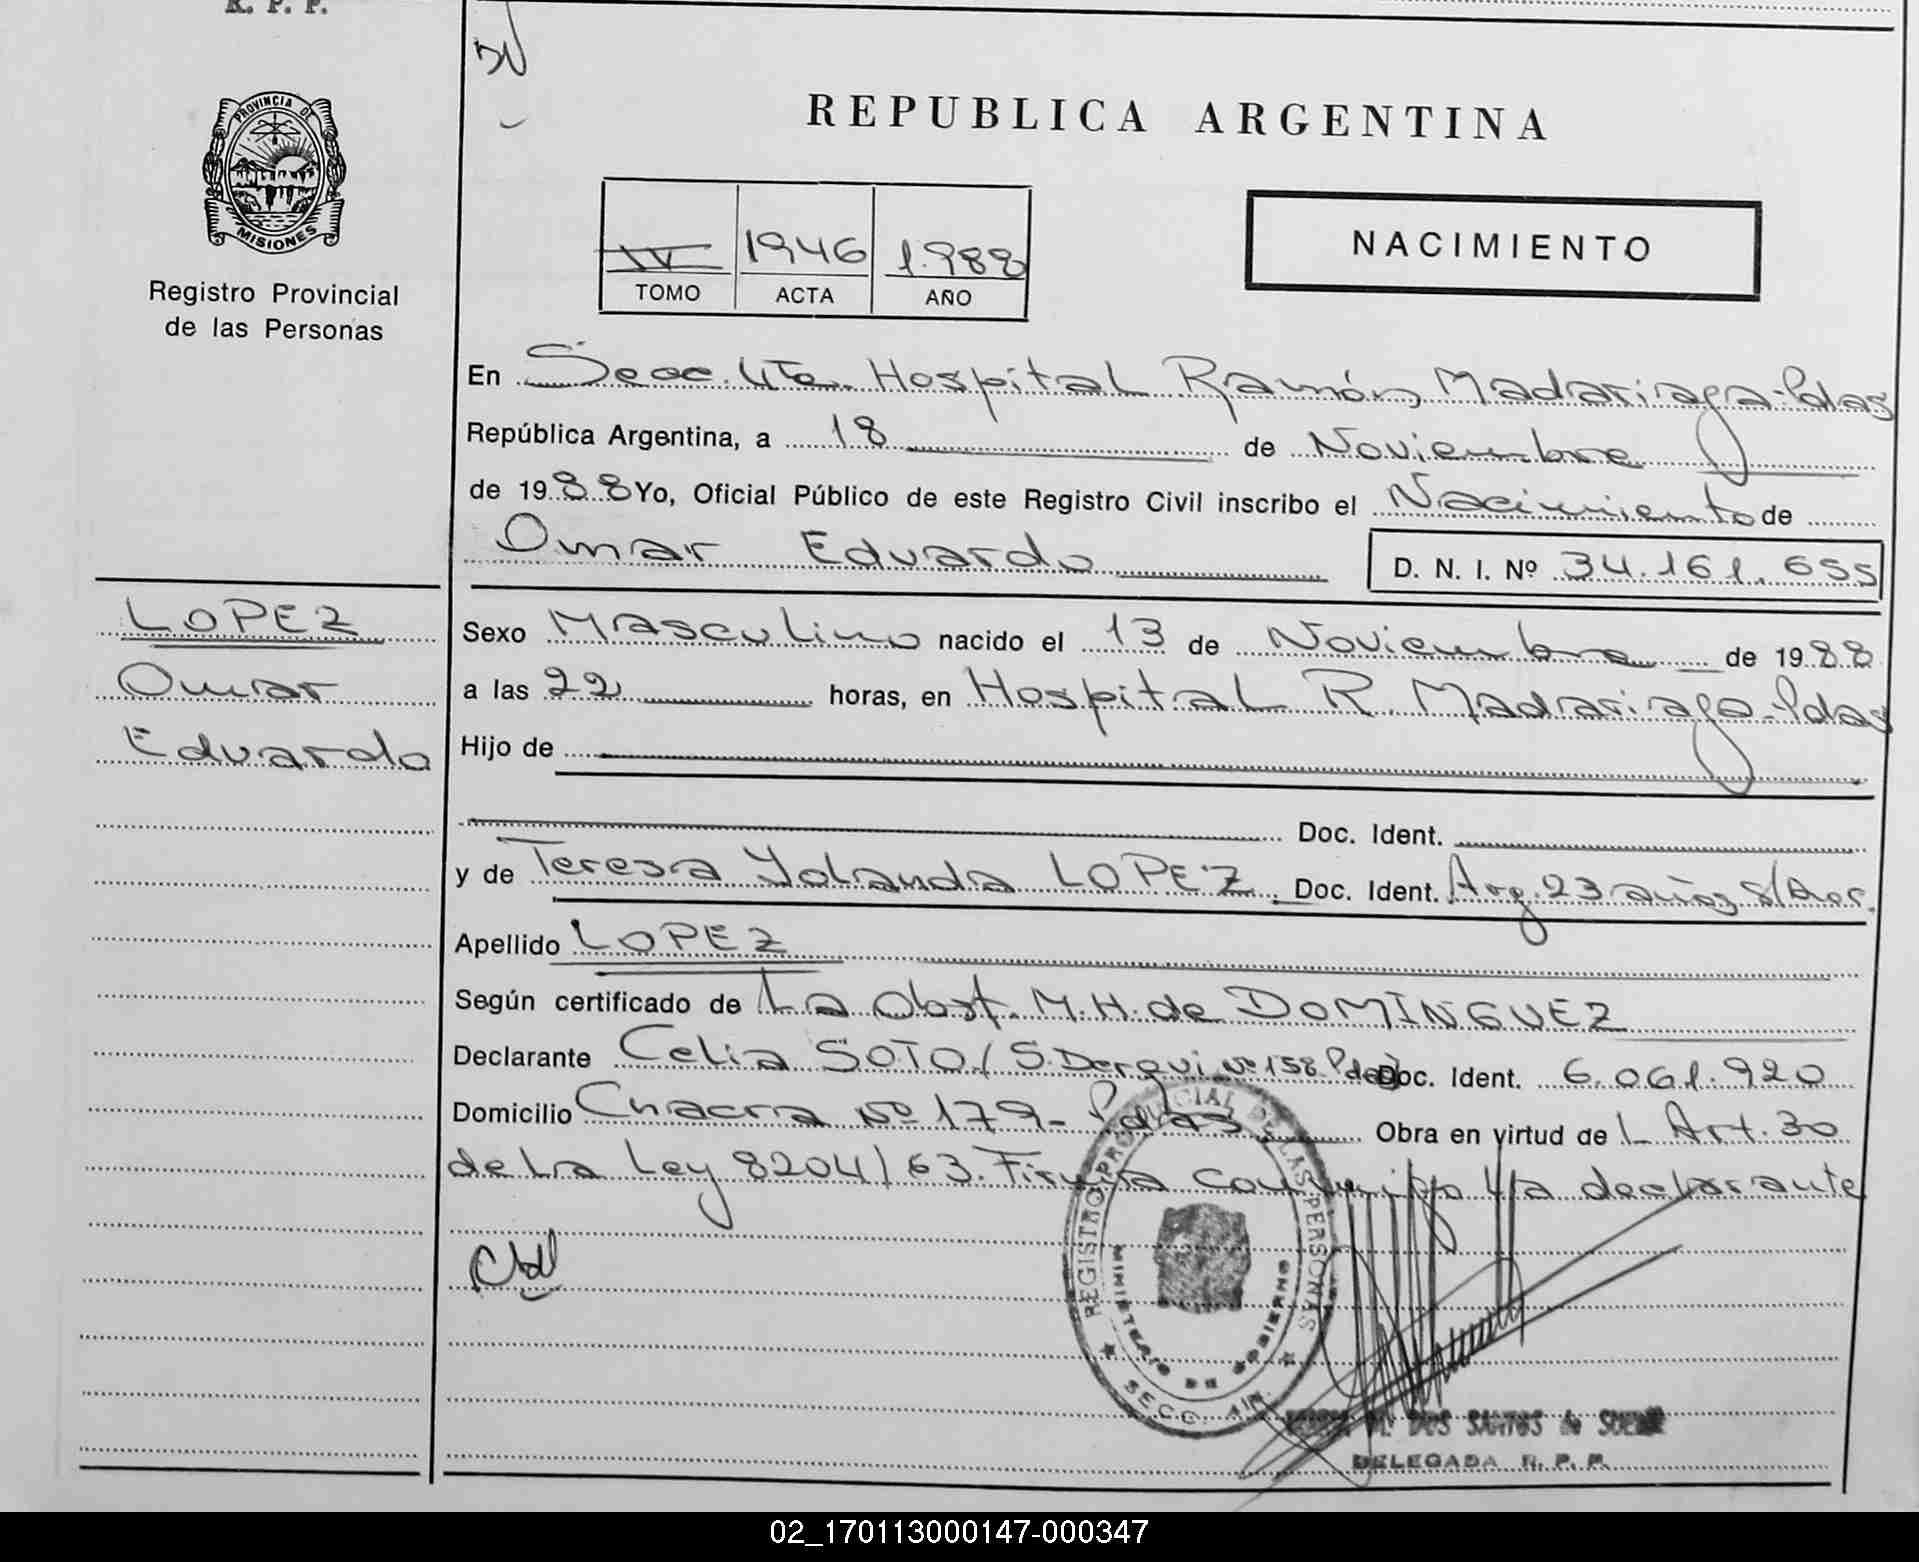 R. P. P.
PROVINCIA DE
MISIONES
Registro Provincial
de las Personas
REPUBLICA ARGENTINA
NACIMIENTO
IV 1946 1.988
TOMO ACTA AÑO
En Secc. 4ta. Hospital Ramón Madariaga-Pdas
República Argentina, a 18 de Noviembre
de 1988 Yo, Oficial Público de este Registro Civil inscribo el Nacimiento de
Omar Eduardo D. N. I. Nº 34.161.655
LOPEZ
Omar
Eduardo
Sexo Masculino nacido el 13 de Noviembre de 1988
a las 22 horas, en Hospital R. Madariaga-Pdas
Hijo de
Doc. Ident.
y de Teresa Yolanda LOPEZ. Doc. Ident. Arg. 23 años s/Doc.
Apellido LOPEZ
Según certificado de La Obst. M.H. de DOMÍNGUEZ
Declarante Celia SOTO/S. Derqui Nº 158 Pdas Doc. Ident. 6.061.920
Domicilio Chacra Nº 179- Pdas. Obra en virtud del Art. 30
de la Ley 8204/63. Firma conmigo la declarante
REGISTRO PROVINCIAL DE LAS PERSONAS
MINISTERIO DE GOBIERNO
SECC.
DOS SANTOS de
DELEGADA R. P. P.
02_170113000147-000347